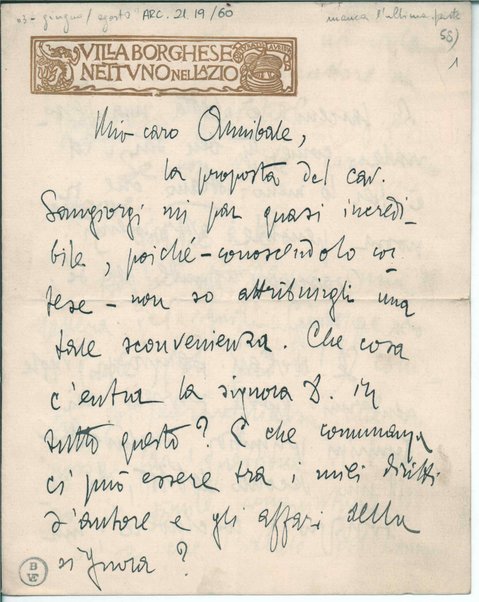 03 - giugno / agosto ARC. 21. 19/60 manca l'ultima parte
58)
1
VILLA BORGHESE
NETTVNO NEL LAZIO
Mio caro Annibale,
la proposta del cav.
Sangiorgi mi par quasi incredi-
bile, poiché - conoscendolo cor-
tese - non so attribuirgli una
tale sconvenienza. Che cosa
c'entra la signora D. in
tutto questo? E che comunanza
ci può essere tra i miei diritti
d'autore e gli affari della
signora?